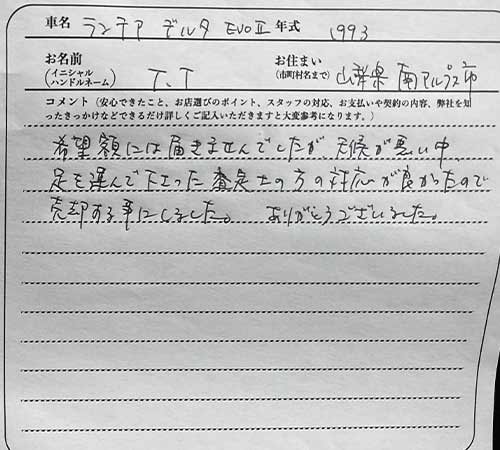 車名 ランチア デルタ EVOⅡ 年式 1993
お名前 (イニシャル ハンドルネーム) T.T お住まい (市町村名まで) 山梨県 南アルプス市
コメント(安心できたこと、お店選びのポイント、スタッフの対応、お支払いや契約の内容、弊社を知
ったきっかけなどできるだけ詳しくご記入いただきますと大変参考になります。)
希望額には届きませんでしたが、天候が悪い中、
足を運んで下さった査定士の方の対応が良かったので
売却する事にしました。 ありがとうございました。